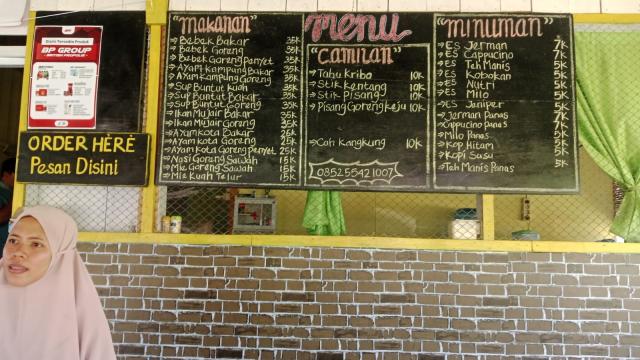 Disini Tersedia Produk
BP GROUP
BRITISH PROPOLIS
ORDER HERE
Pesan Disini
"MAKANAN"
→ Bebek Bakar 35K
→ Bebek Goreng 35K
→ Bebek Goreng Penyet 35K
→ Ayam Kampung Bakar 35K
→ Ayam Kampung Goreng 35K
→ Sup Buntut Kuah 35K
→ Sup Buntut Bakar 35K
→ Sup Buntut Goreng 35K
→ Ikan Mujair Bakar 35K
→ Ikan Mujair Goreng 35K
→ Ayam kota Bakar 25K
→ Ayam kota Goreng 25K
→ Ayam Kota Goreng Penyet 25K
→ Nasi Goreng Sawah 15K
→ Mie Goreng Sawah 15K
→ Mie Kuah Telur 15K
Menu
"CAMILAN"
→ Tahu kribo 10K
→ Stik kentang 10K
→ Stik Pisang 10K
→ Pisang Goreng keju 10K
→ Cah Kangkung 10K
085255421007
"MINUMAN"
→ ES Jerman 7K
→ ES Cappucino 7K
→ ES Teh Manis 5K
→ ES Kobokan 5K
→ ES Nutri 5K
→ ES Milo 5K
→ ES Janiper 5K
→ Jerman Panas 7K
→ Cappucino Panas 7K
→ Milo Panas 5K
→ Kopi Hitam 5K
→ Kopi Susu 5K
→ Teh Manis Panas 5K